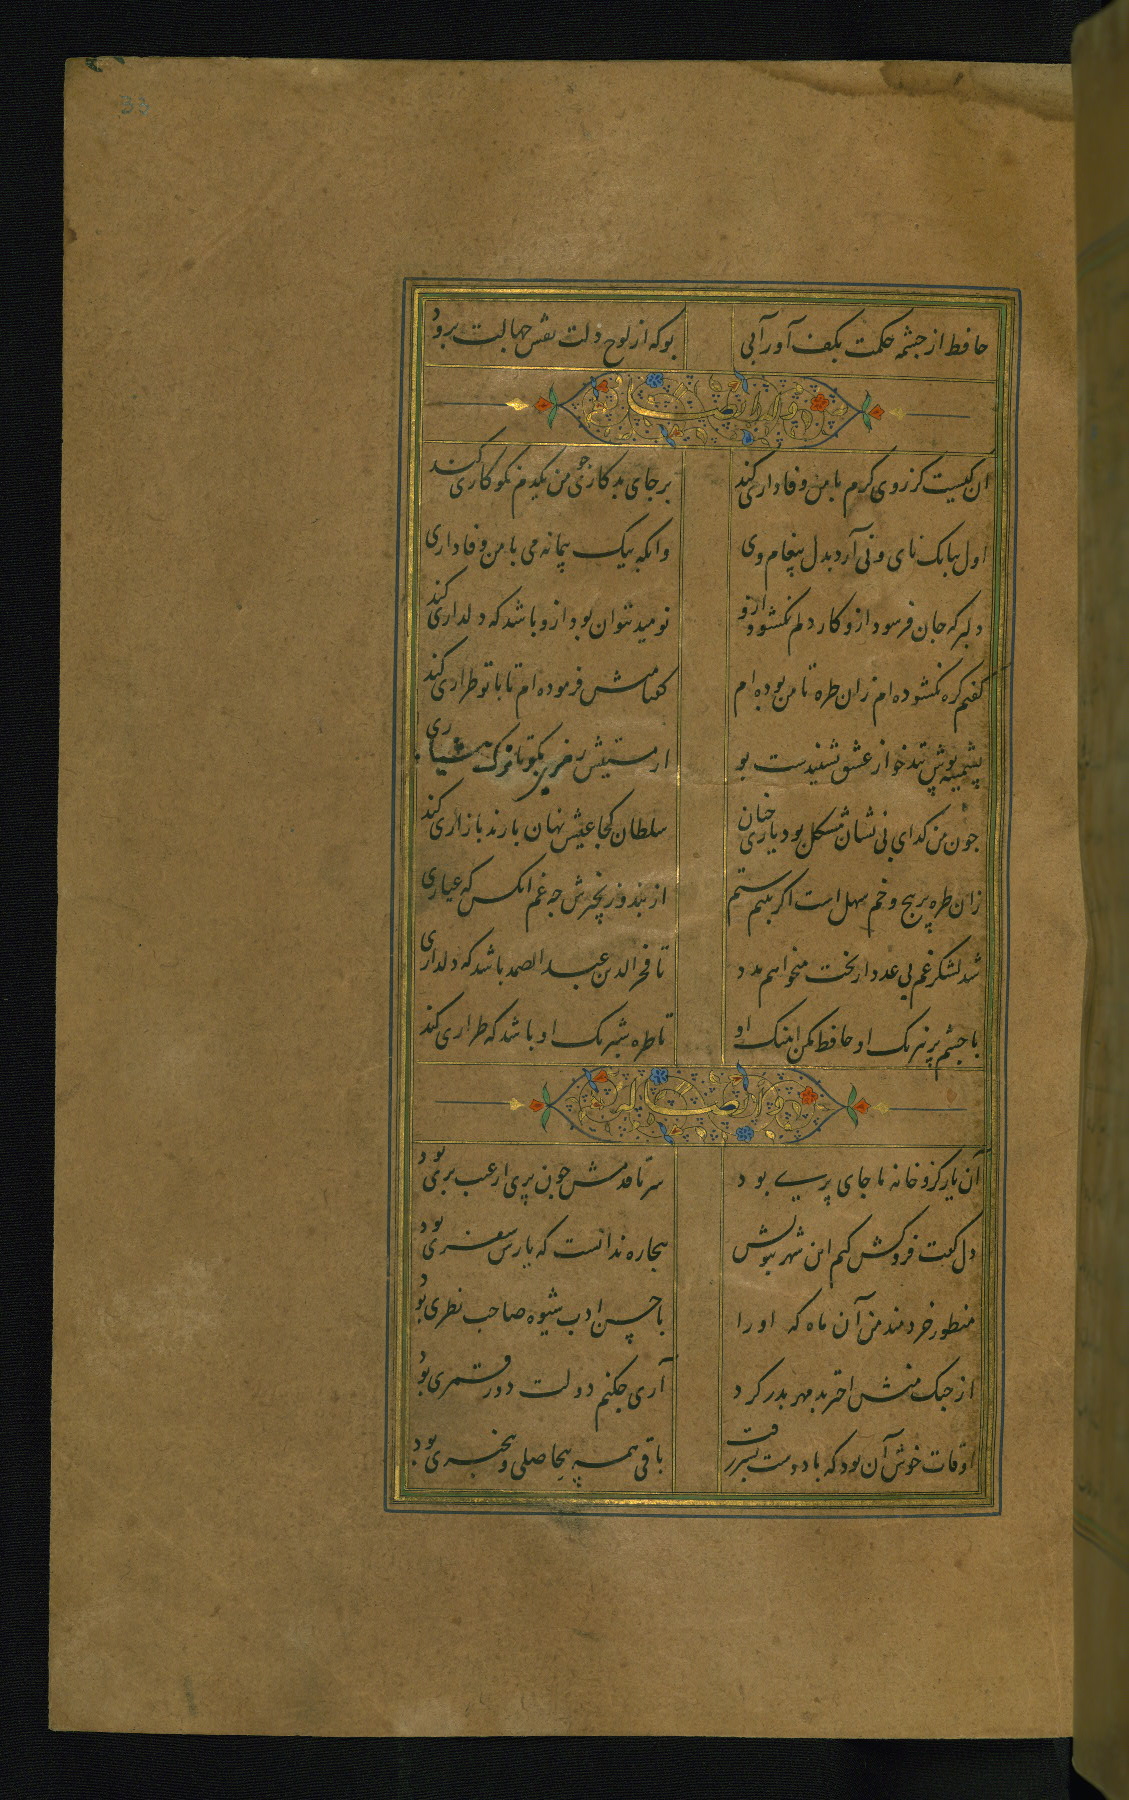 33
حافظ از چشمه حکمت بکف آور آبی بوکه از لوح دلت نقش جهالت برود
وله ایضا
ان کیست کز روی کرم با من وفاداری کند بر جای بدکاری جو من یکدم نکوکاری کند
اول ببانک نای و نی آرد بدل پیغام وی وانکه بیک پیمانه می با من وفاداری کند
دلبر که جان فرسود ازو کار دلم نکشود ازو نومید نتوان بود ازو باشد که دلداری کند
کفتم کره نکشوده ام زان طره تا من بوده ام کفتا منش فرموده ام تا با تو طراری کند
پشمینه پوش تندخو از عشق نشنیدست بو از مستیش رمزی بکو تا ترک هشیاری
جون من کدای بی نشان مشکل بود یاری جنان سلطان کجا عیش نهان با رند بازاری کند
زان طره پر پیج و خم سهل است اکر بینم ستم از بند و زنجیرش جه غم انکس که عیاری
شد لشکر غم بی عدد از بخت میخواهم مدد تا فخر الدین عبد الصمد باشد که دلداری
با جشم پر نیرنک او حافظ مکن اهنک او تا طره شبرنک او باشد که طراری کند
وله ایضا
آن یار کزو خانه ما جای پری بود سر تا قدمش جون پری از عیب بری بود
دل کفت فروکش کنم این شهر ببویش بیجاره ندانست که یارش سفری بود
منظور خردمند من آن ماه که او را با حسن ادب شیوه صاحب نظری بود
از جنک منش اختر بدمهر بدر کرد آری جکنم دولت دور قمری بود
اوقات خوش آن بود که با دوست بسر رفت باقی همه بیحاصلی و بیخبری بود